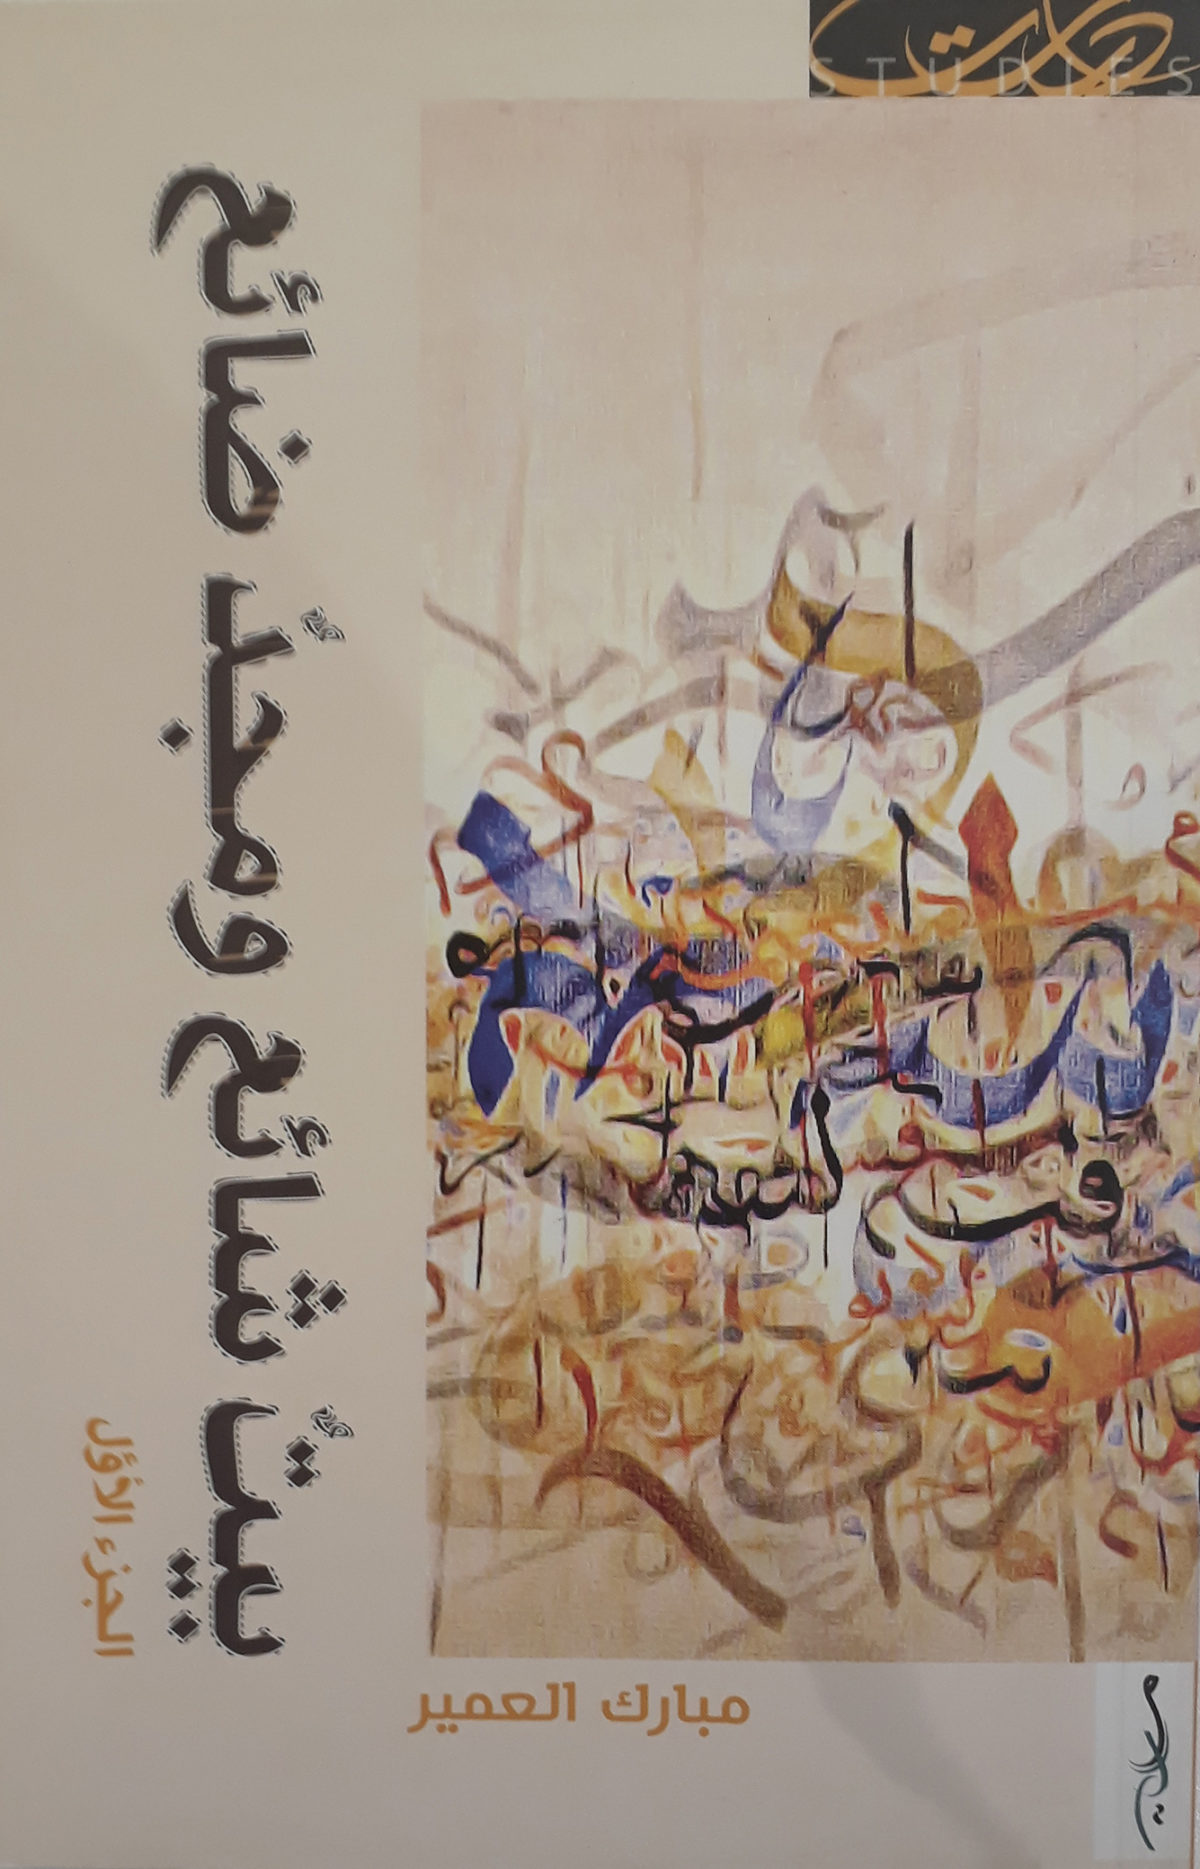 دراسات
STUDIES
بيتٌ شائع ومجدٌ ضائع
الجزء الأوّل
مبارك العمير